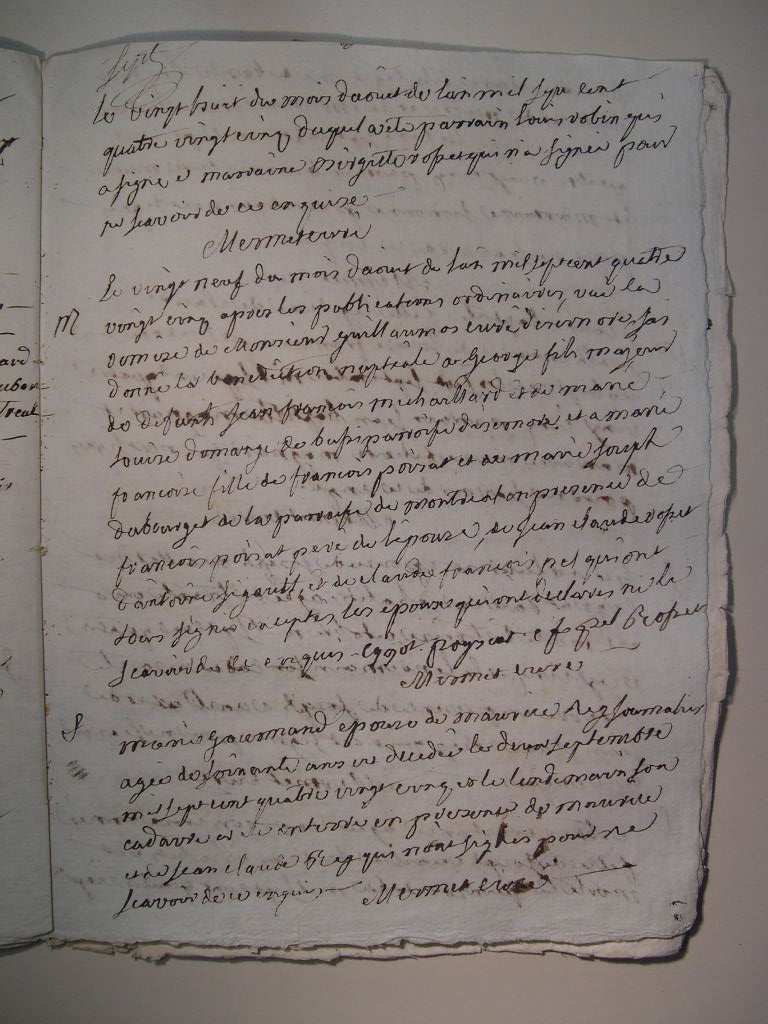 Sept
le vingt huit du mois daôut de lan mil sept cent
quatre vingt cinq duquel a été parrain louis robin qui
a signé et marraine Brigitte ropet qui n'a signé pour
ne scavoir de ce enquise
Mermet curé
M
Le vingt neuf du mois daout de lan mil sept cent quatre
vingt cinq apres les publications ordinaires, vue la
demise de Monsieur guillaumos curé disernore, jai
donné la benediction nuptiale a George fils majeur
de defunt Jean francois michaillard et de marie
louise domange de bussi parroisse disernore, et a marie
francoise fille de francois poisat et de marie Joseph
dubourget de la parroisse de montreal en presence de
francois poisat pere de lépouse, de Jean claude ropet
d'antoine sigault, et de claude francois pel qui ont
tous signé exceptés les epoux qui ont declarés ne le
scavoir de ce enquis poysat c f pel Ropet
Mermet curé
S
marie gourmand epouse de maurice Rey Journalier
agée de soixante ans est decedée le deux septembre
mil sept cent quatre vingt cinq, et le lendemain son
cadavre a été enterré en presence de maurice
et de Jean claude Rey qui n'ont signés pour ne
scavoir de ce enquis
Mermet curé
ard
Treuil